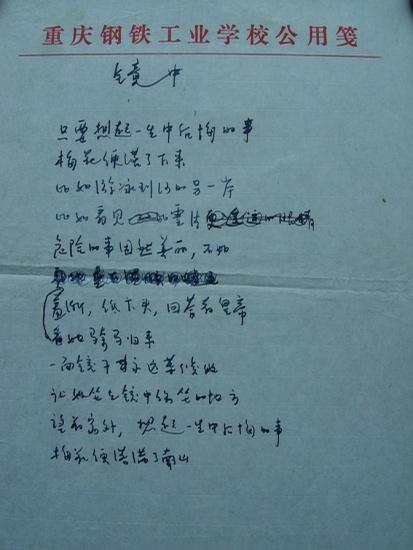 重庆钢铁工业学校公用笺
镜中
只要想起一生中后悔的事
梅花便落了下来
比如游泳到河的另一岸
比如看见
危险的事固然美丽，不如
羞惭，低下头，回答着皇帝
看她骑马归来
一面镜子永远等候她
让她坐到镜中常坐的地方
望着窗外，想起一生中后悔的事
梅花便落满了南山